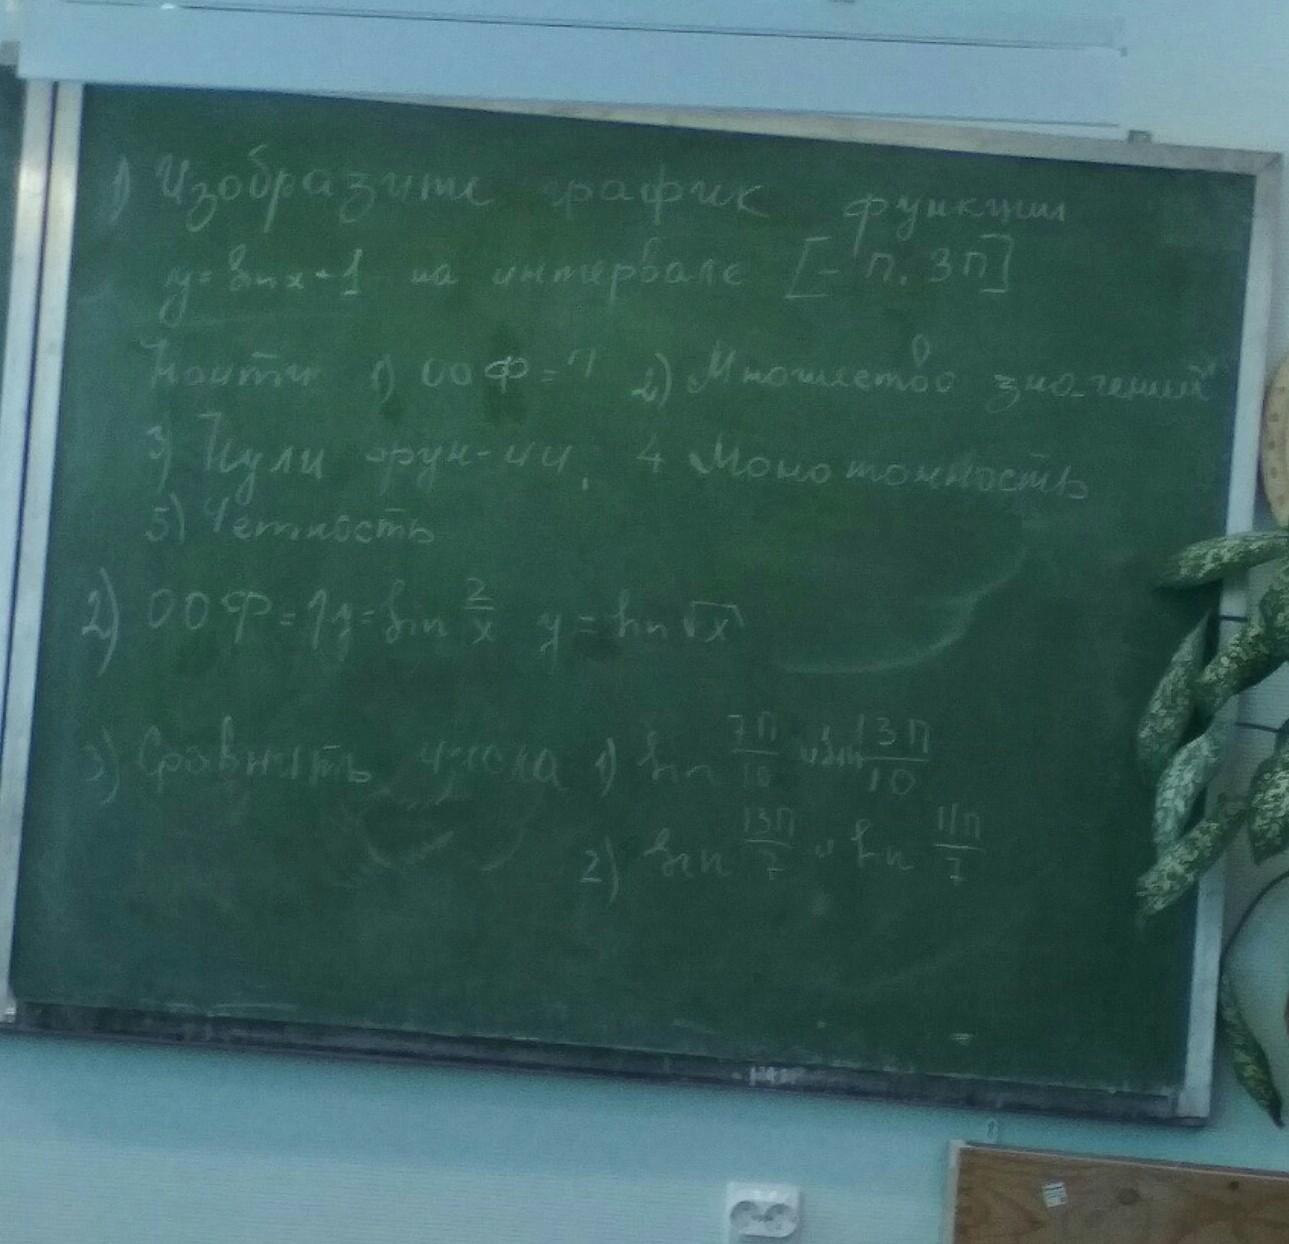 1) Изобразите график функции
y = sin x + 1 на интервале [- П, 3П]
Найти 1) ООФ = ? 2) Множество значений
3) Нули фун-ии, 4 Монотонность
5) Четность
2) ООФ = ? y = sin 2/x y = sin √x
3) Сравнить числа 1) sin 7П/10 и sin 13П/10
2) sin 13П/7 и sin 11П/7